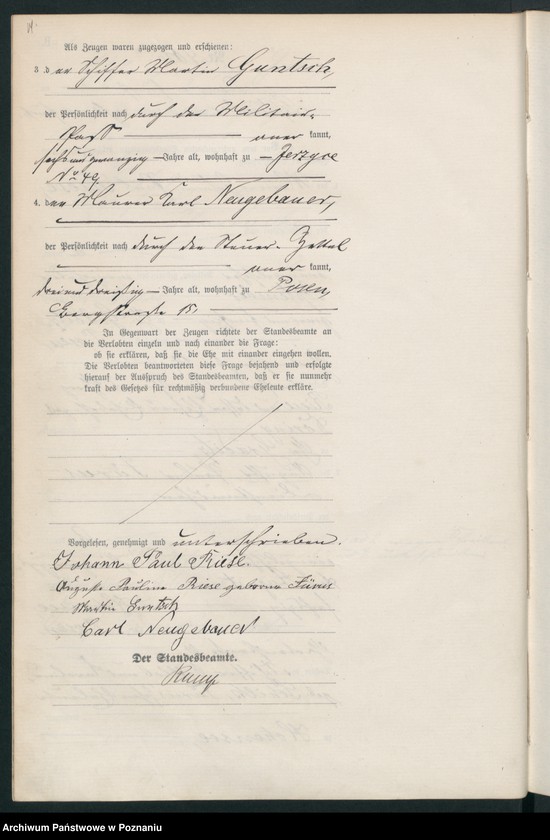 Als Zeugen waren zugezogen und erschienen:
3. der Schiffer Martin Guntsch,
der Persönlichkeit nach durch den Militair-
Paß — aner kannt,
sechsundzwanzig — Jahre alt, wohnhaft zu — Jerzyce
No 49,
4. der Maurer Karl Neugebauer,
der Persönlichkeit nach durch den Steuer-Zettel
— aner kannt,
dreiunddreißig — Jahre alt, wohnhaft zu Posen,
Bergstraße 15.
In Gegenwart der Zeugen richtete der Standesbeamte an
die Verlobten einzeln und nach einander die Frage:
ob sie erklären, daß sie die Ehe mit einander eingehen wollen.
Die Verlobten beantworteten diese Frage bejahend und erfolgte
hierauf der Ausspruch des Standesbeamten, daß er sie nunmehr
kraft des Gesetzes für rechtmäßig verbundene Eheleute erkläre.
Vorgelesen, genehmigt und unterschrieben.
Johann Paul Riese.
Auguste Pauline Riese geborne
Martin Guntsch
Carl Neugebauer
Der Standesbeamte.
Archiwum Państwowe w Poznaniu